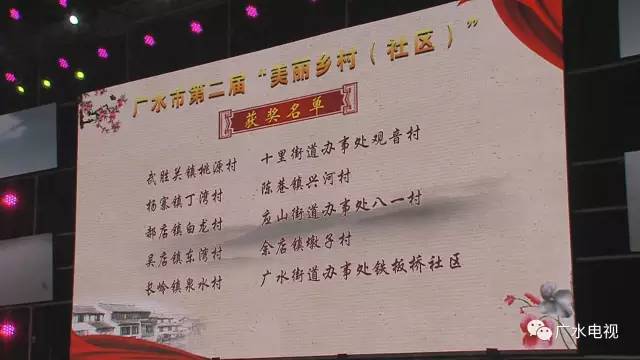 广水市第二届“美丽乡村（社区）”
获奖名单
武胜关镇桃源村
杨寨镇丁湾村
郝店镇白龙村
吴店镇东湾村
长岭镇泉水村
十里街道办事处观音村
陈巷镇兴河村
应山街道办事处八一村
余店镇墩子村
广水街道办事处铁板桥社区
广水电视